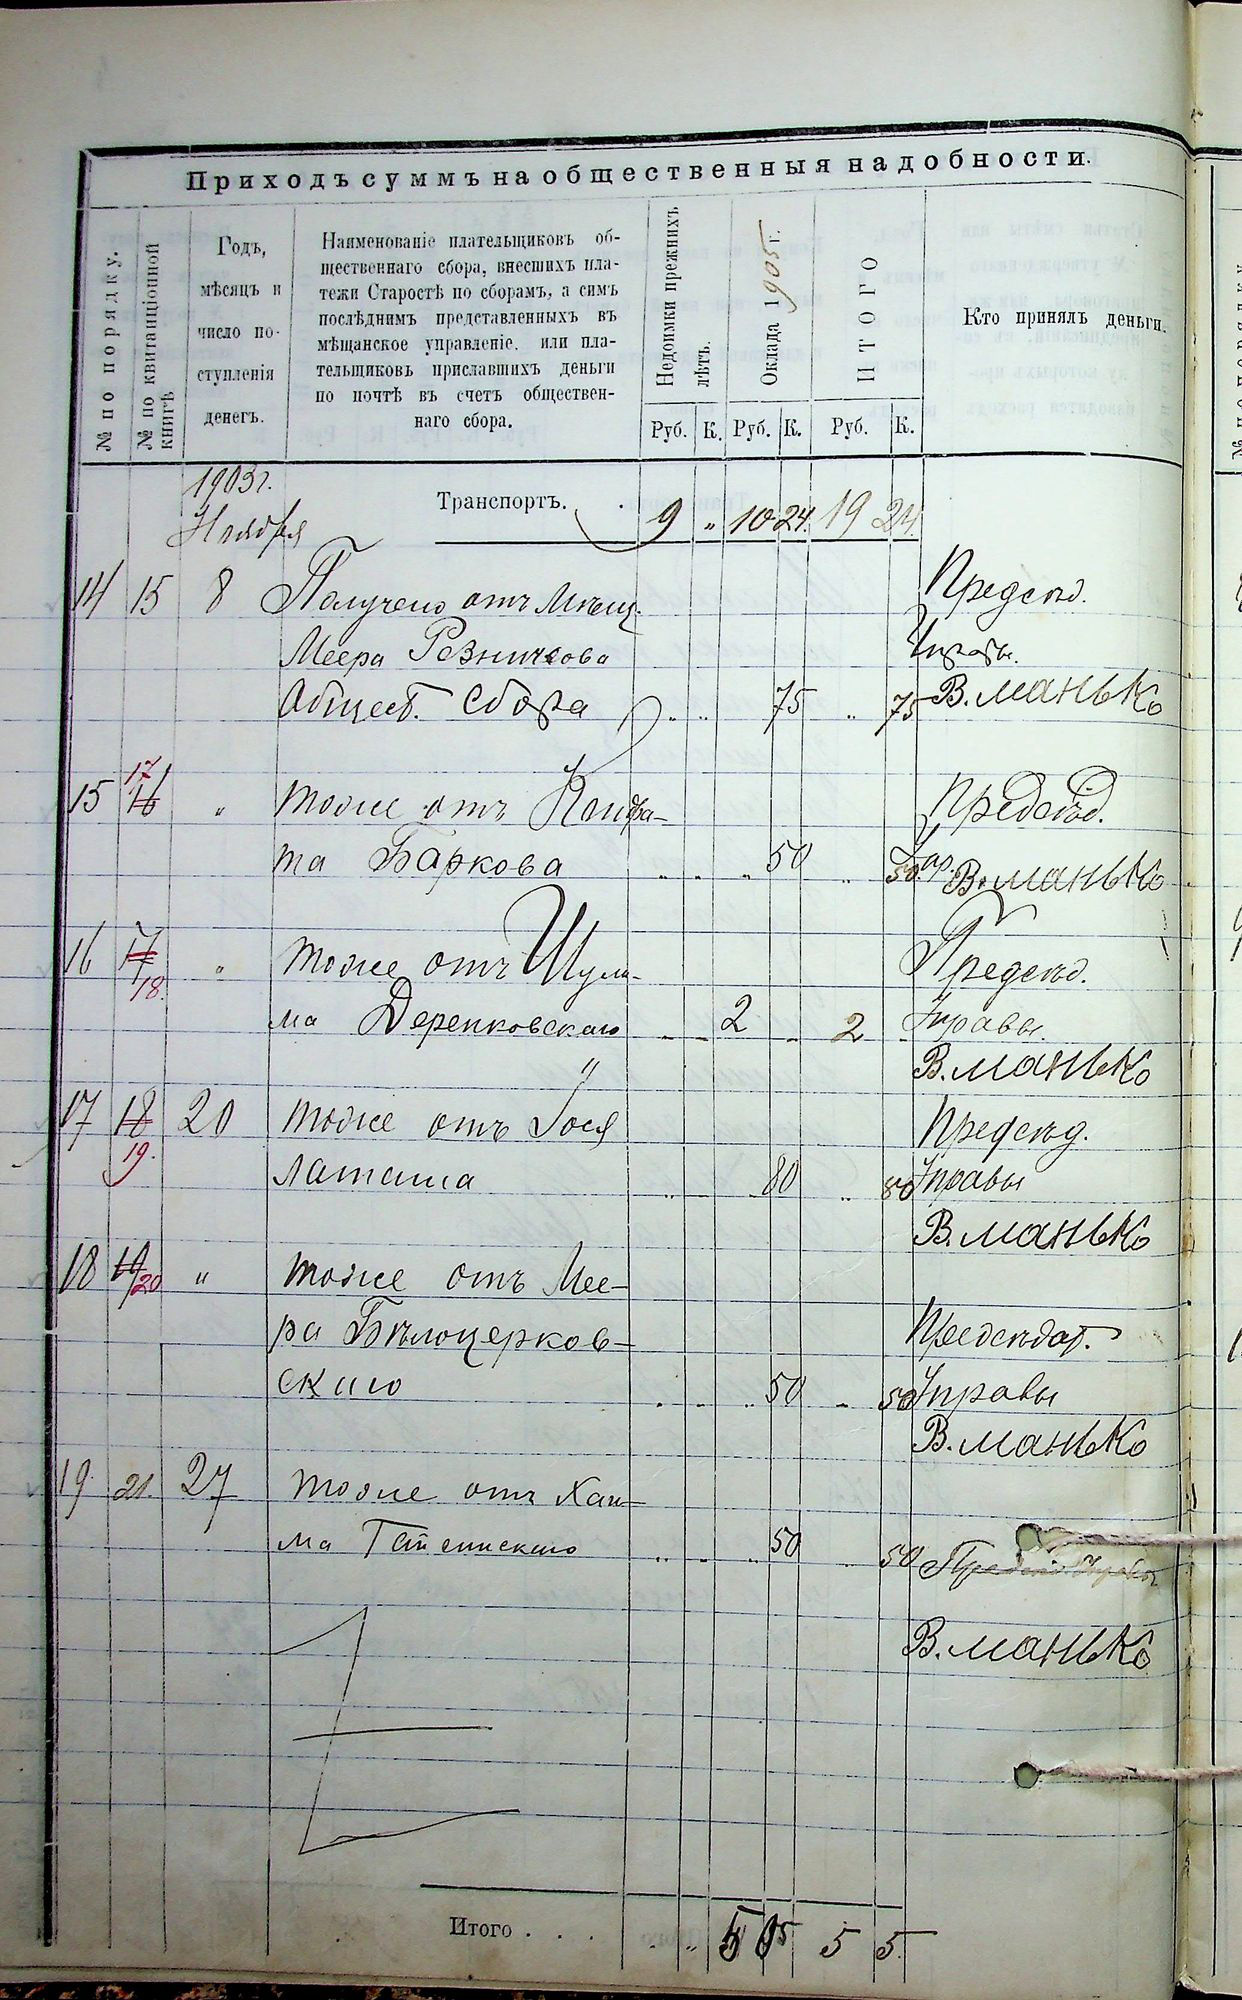 Приходъ суммъ на общественныя надобности.
№ по порядку.
№ по квитанціонной книгѣ
Годъ,
мѣсяцъ и
число по-
ступленія
денегъ.
Наименованіе плательщиковъ об-
щественнаго сбора, внесшихъ пла-
тежи Старостѣ по сборамъ, а симъ
послѣднимъ представленныхъ въ
мѣщанское управленіе, или пла-
тельщиковъ приславшихъ деньги
по почтѣ въ счетъ обществен-
наго сбора.
Недоимки прежнихъ лѣтъ.
Оклада 1905 г.
ИТОГО
Кто принялъ деньги.
Руб. К. Руб. К. Руб. К.
1903 г.
Ноября
Транспортъ. . 9 „ 10 24 19 24
14 15 8 Получено отъ Мѣщ. Предсѣд.
Меера Резникова Управы.
Общест. сбора „ „ 75 „ 75 В. Манько
15 16 17 „ тоже отъ Предсѣд.
та Баркова „ „ „ 50 „ 50 Упр. В. Манько
16 17 18. „ тоже отъ Шули- Предсѣд.
ма Деренковскаго „ „ 2 „ 2 „ Управы.
В. Манько
17 18 19. 20 тоже отъ Іося Предсѣд.
Латаша „ „ „ 80 „ 80 Управы
В. Манько
18 19 20 „ тоже отъ Мее-
ра Бѣлоцерков- Предсѣдат.
скаго „ „ „ 50 „ 50 Управы
В. Манько
19. 21. 27 тоже отъ Хаи-
ма „ „ „ 50 „ 50 Предсѣд. Управы
В. Манько
Итого . . . . „ 5 05 5 5.